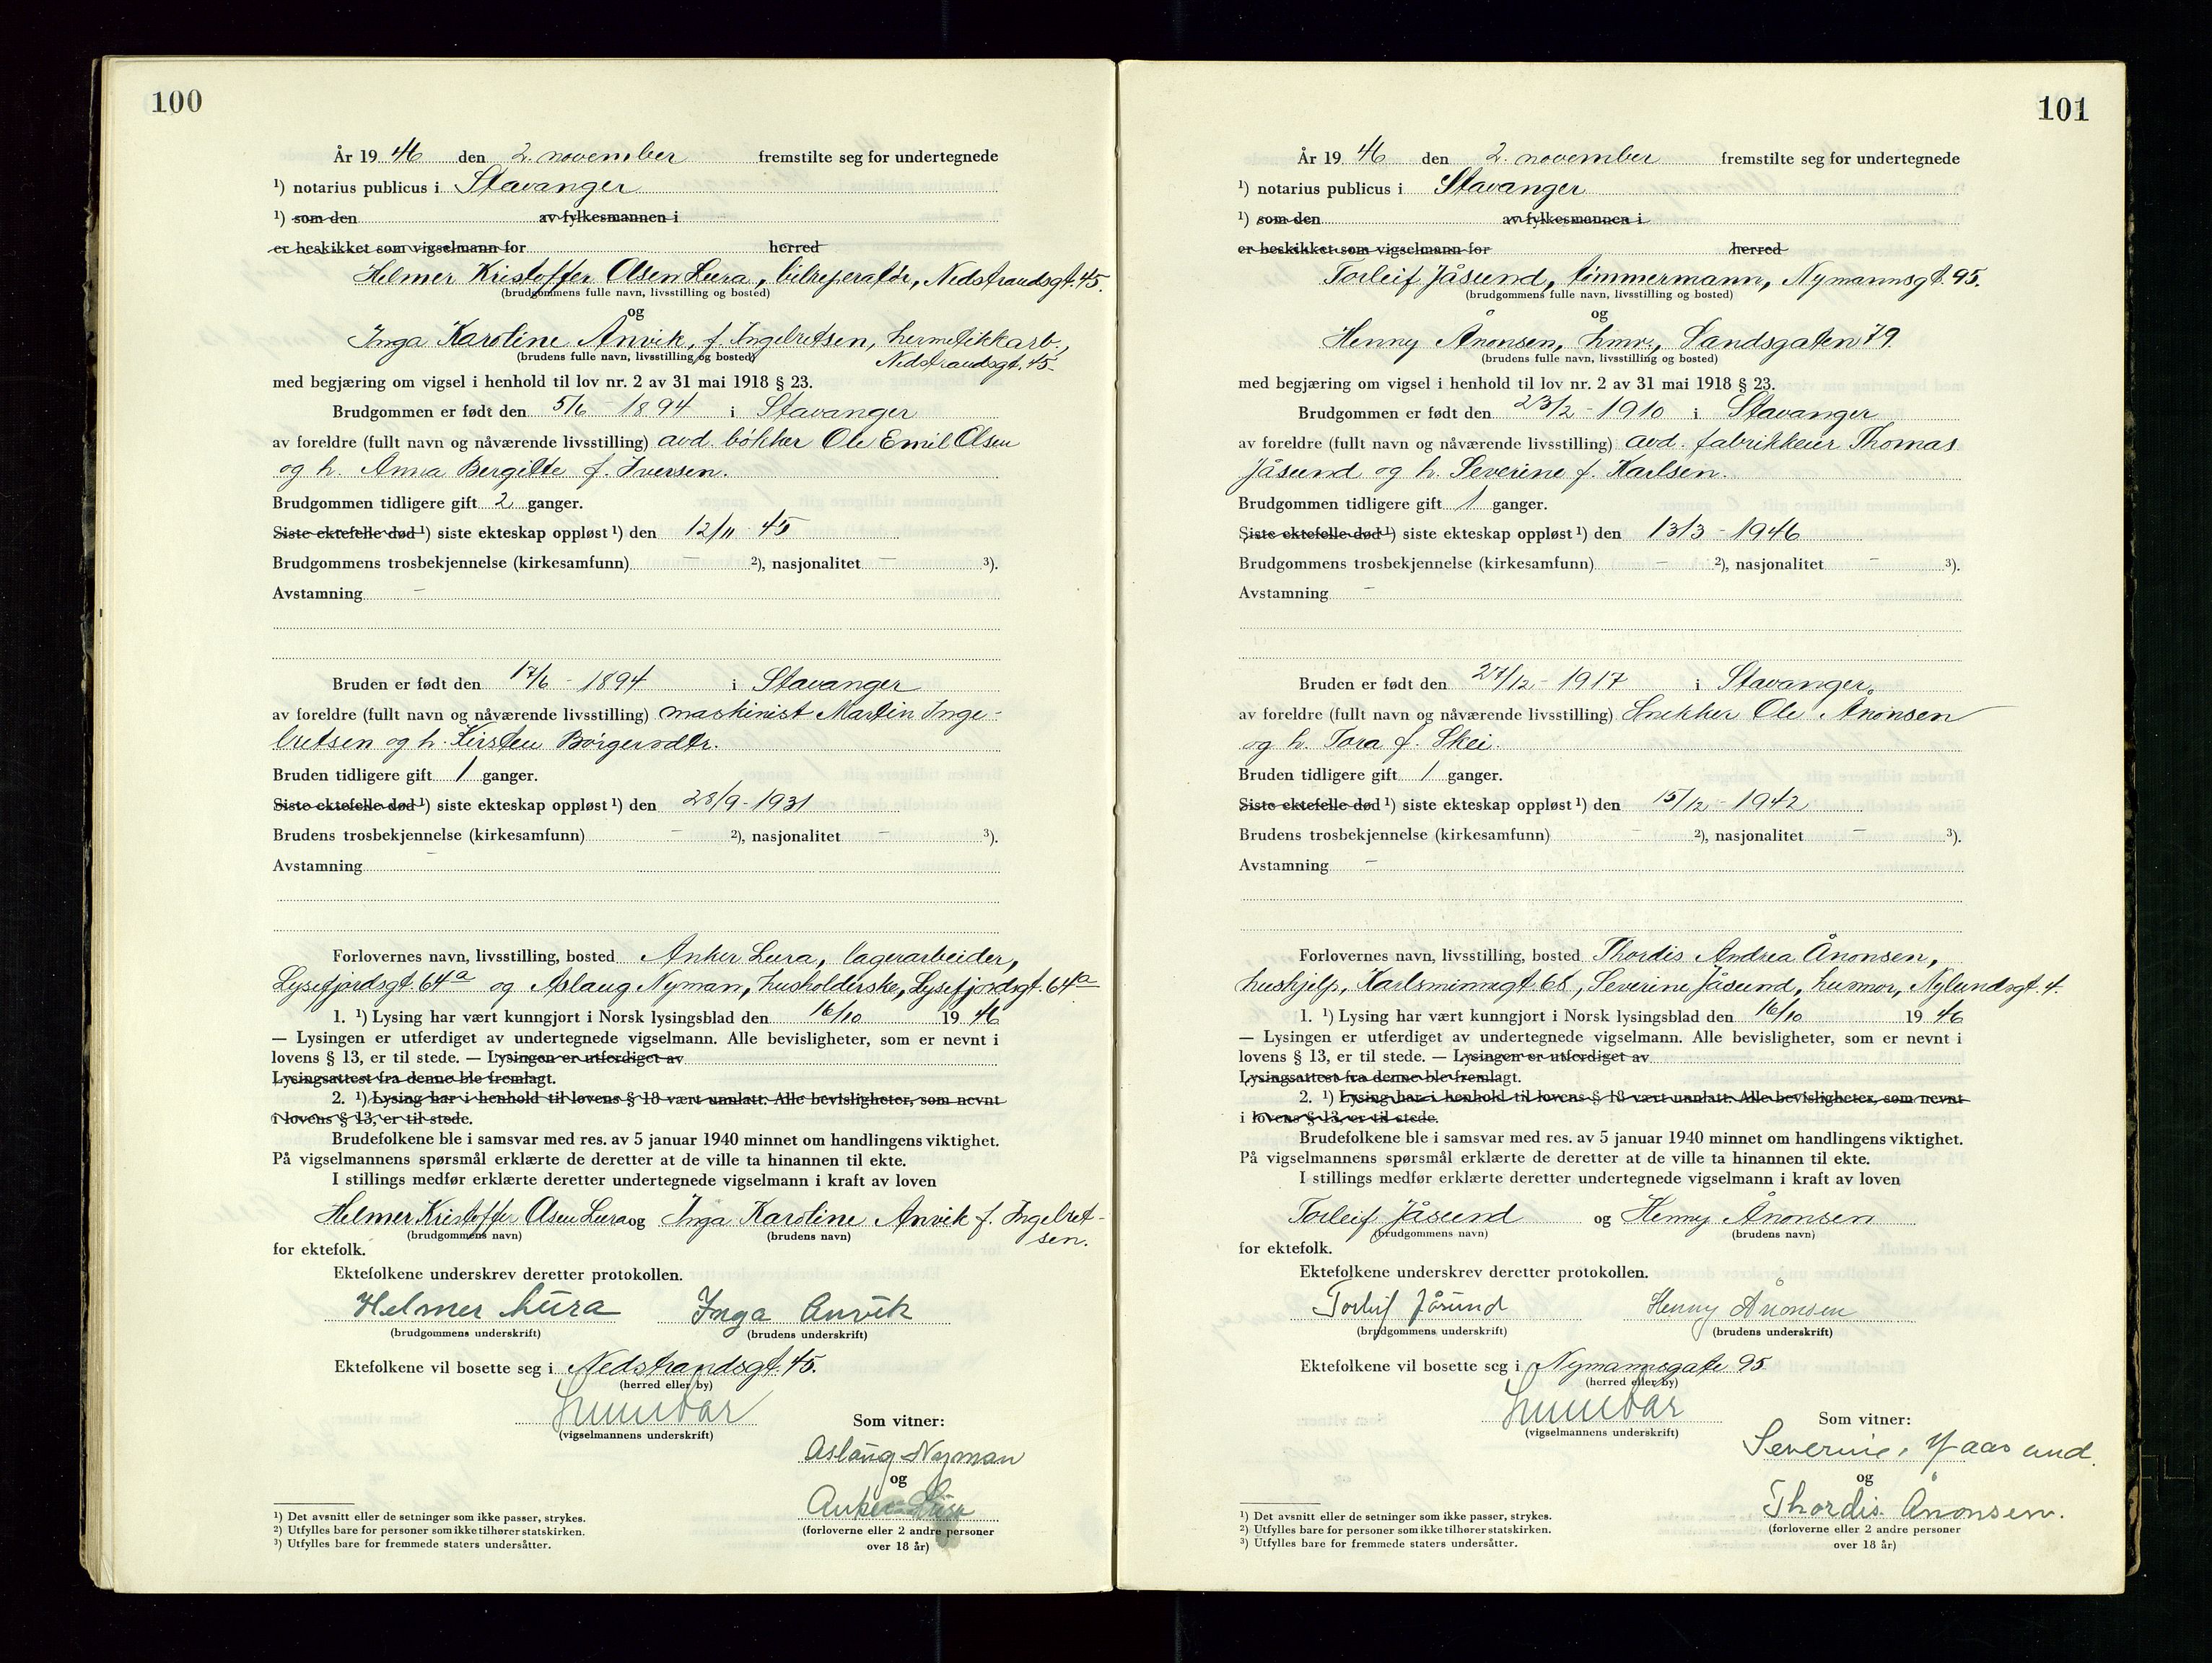 100
År 19 46 den 2. november fremstilte seg for undertegnede
¹) notarius publicus i Stavanger
¹) som den av fylkesmannen i
er beskikket som vigselmann for herred
Helmer Kristoffer Olsen Lura, bilreperatör, Nedstrandsgt. 45.
(brudgommens fulle navn, livsstilling og bosted)
og
Inga Karoline Anvik, f. Ingelretsen, hermetikkarb.,
(brudens fulle navn, livsstilling og bosted)
Nedstrandsgt. 45.
med begjæring om vigsel i henhold til lov nr. 2 av 31 mai 1918 § 23.
Brudgommen er født den 5/6 - 1894 i Stavanger
av foreldre (fullt navn og nåværende livsstilling) avd. bökker Ole Emil Olsen
og h. Anna Bergitte f. Iversen.
Brudgommen tidligere gift 2 ganger.
Siste ektefelle død ¹) siste ekteskap oppløst ¹) den 12/11 - 45
Brudgommens trosbekjennelse (kirkesamfunn) - ²), nasjonalitet - ³).
Avstamning -
Bruden er født den 17/6 - 1894 i Stavanger
av foreldre (fullt navn og nåværende livsstilling) maskinist Martin Inge-
bretsen og h. Kirsten Börgersdtr.
Bruden tidligere gift 1 ganger.
Siste ektefelle død ¹) siste ekteskap oppløst ¹) den 28/9 - 1931
Brudens trosbekjennelse (kirkesamfunn) - ²), nasjonalitet - ³).
Avstamning -
Forlovernes navn, livsstilling, bosted Anker Lura, lagerarbeider,
Lysefjordsgt. 64a og Aslaug Nyman, husholderske, Lysefjordsgt. 64a
1. ¹) Lysing har vært kunngjort i Norsk lysingsblad den 16/10 19 46
— Lysingen er utferdiget av undertegnede vigselmann. Alle bevisligheter, som er nevnt i
lovens § 13, er til stede. — Lysingen er utferdiget av
Lysingsattest fra denne ble fremlagt.
2. ¹) Lysing har i henhold til lovens § 18 vært unnlatt. Alle bevisligheter, som nevnt
i lovens § 13, er til stede.
Brudefolkene ble i samsvar med res. av 5 januar 1940 minnet om handlingens viktighet.
På vigselmannens spørsmål erklærte de deretter at de ville ta hinannen til ekte.
I stillings medfør erklærte deretter undertegnede vigselmann i kraft av loven
Helmer Kristoffer Olsen Lura og Inga Karoline Anvik f. Ingelret-
(brudgommens navn) (brudens navn) sen.
for ektefolk.
Ektefolkene underskrev deretter protokollen.
Helmer Lura Inga Anvik
(brudgommens underskrift) (brudens underskrift)
Ektefolkene vil bosette seg i Nedstrandsgt. 45.
(herred eller by)
(vigselmannens underskrift)
Som vitner:
Aslaug Nyman
og
Anker Lura
(forloverne eller 2 andre personer
over 18 år)
¹) Det avsnitt eller de setninger som ikke passer, strykes.
²) Utfylles bare for personer som ikke tilhører statskirken.
³) Utfylles bare for fremmede staters undersåtter.
101
År 19 46 den 2. november fremstilte seg for undertegnede
¹) notarius publicus i Stavanger
¹) som den av fylkesmannen i
er beskikket som vigselmann for herred
Torleif Jåsund, tömmermann, Nymannsgt. 95.
(brudgommens fulle navn, livsstilling og bosted)
og
Henny Ånonsen, hmr., Sandsgaten 79.
(brudens fulle navn, livsstilling og bosted)
med begjæring om vigsel i henhold til lov nr. 2 av 31 mai 1918 § 23.
Brudgommen er født den 23/2 - 1910 i Stavanger
av foreldre (fullt navn og nåværende livsstilling) avd. fabrikkeier Thomas
Jåsund og h. Severine f. Karlsen.
Brudgommen tidligere gift 1 ganger.
Siste ektefelle død ¹) siste ekteskap oppløst ¹) den 13/3 - 1946
Brudgommens trosbekjennelse (kirkesamfunn) - ²), nasjonalitet - ³).
Avstamning -
Bruden er født den 27/12 - 1917 i Stavanger
av foreldre (fullt navn og nåværende livsstilling) Snekker Ole Ånonsen
og h. Tora f. Skei.
Bruden tidligere gift 1 ganger.
Siste ektefelle død ¹) siste ekteskap oppløst ¹) den 15/12 - 1942
Brudens trosbekjennelse (kirkesamfunn) - ²), nasjonalitet - ³).
Avstamning -
Forlovernes navn, livsstilling, bosted Thordis Andrea Ånonsen,
hushjelp, Karlsminnegt. 68, Severine Jåsund, husmor, Nylundsgt. 4.
1. ¹) Lysing har vært kunngjort i Norsk lysingsblad den 16/10 19 46
— Lysingen er utferdiget av undertegnede vigselmann. Alle bevisligheter, som er nevnt i
lovens § 13, er til stede. — Lysingen er utferdiget av
Lysingsattest fra denne ble fremlagt.
2. ¹) Lysing har i henhold til lovens § 18 vært unnlatt. Alle bevisligheter, som nevnt
i lovens § 13, er til stede.
Brudefolkene ble i samsvar med res. av 5 januar 1940 minnet om handlingens viktighet.
På vigselmannens spørsmål erklærte de deretter at de ville ta hinannen til ekte.
I stillings medfør erklærte deretter undertegnede vigselmann i kraft av loven
Torleif Jåsund og Henny Ånonsen
(brudgommens navn) (brudens navn)
for ektefolk.
Ektefolkene underskrev deretter protokollen.
Torleif Jåsund Henny Ånonsen
(brudgommens underskrift) (brudens underskrift)
Ektefolkene vil bosette seg i Nymannsgate 95
(herred eller by)
(vigselmannens underskrift)
Som vitner:
Severine Yaasund.
og
Thordis Ånonsen.
(forloverne eller 2 andre personer
over 18 år)
¹) Det avsnitt eller de setninger som ikke passer, strykes.
²) Utfylles bare for personer som ikke tilhører statskirken.
³) Utfylles bare for fremmede staters undersåtter.